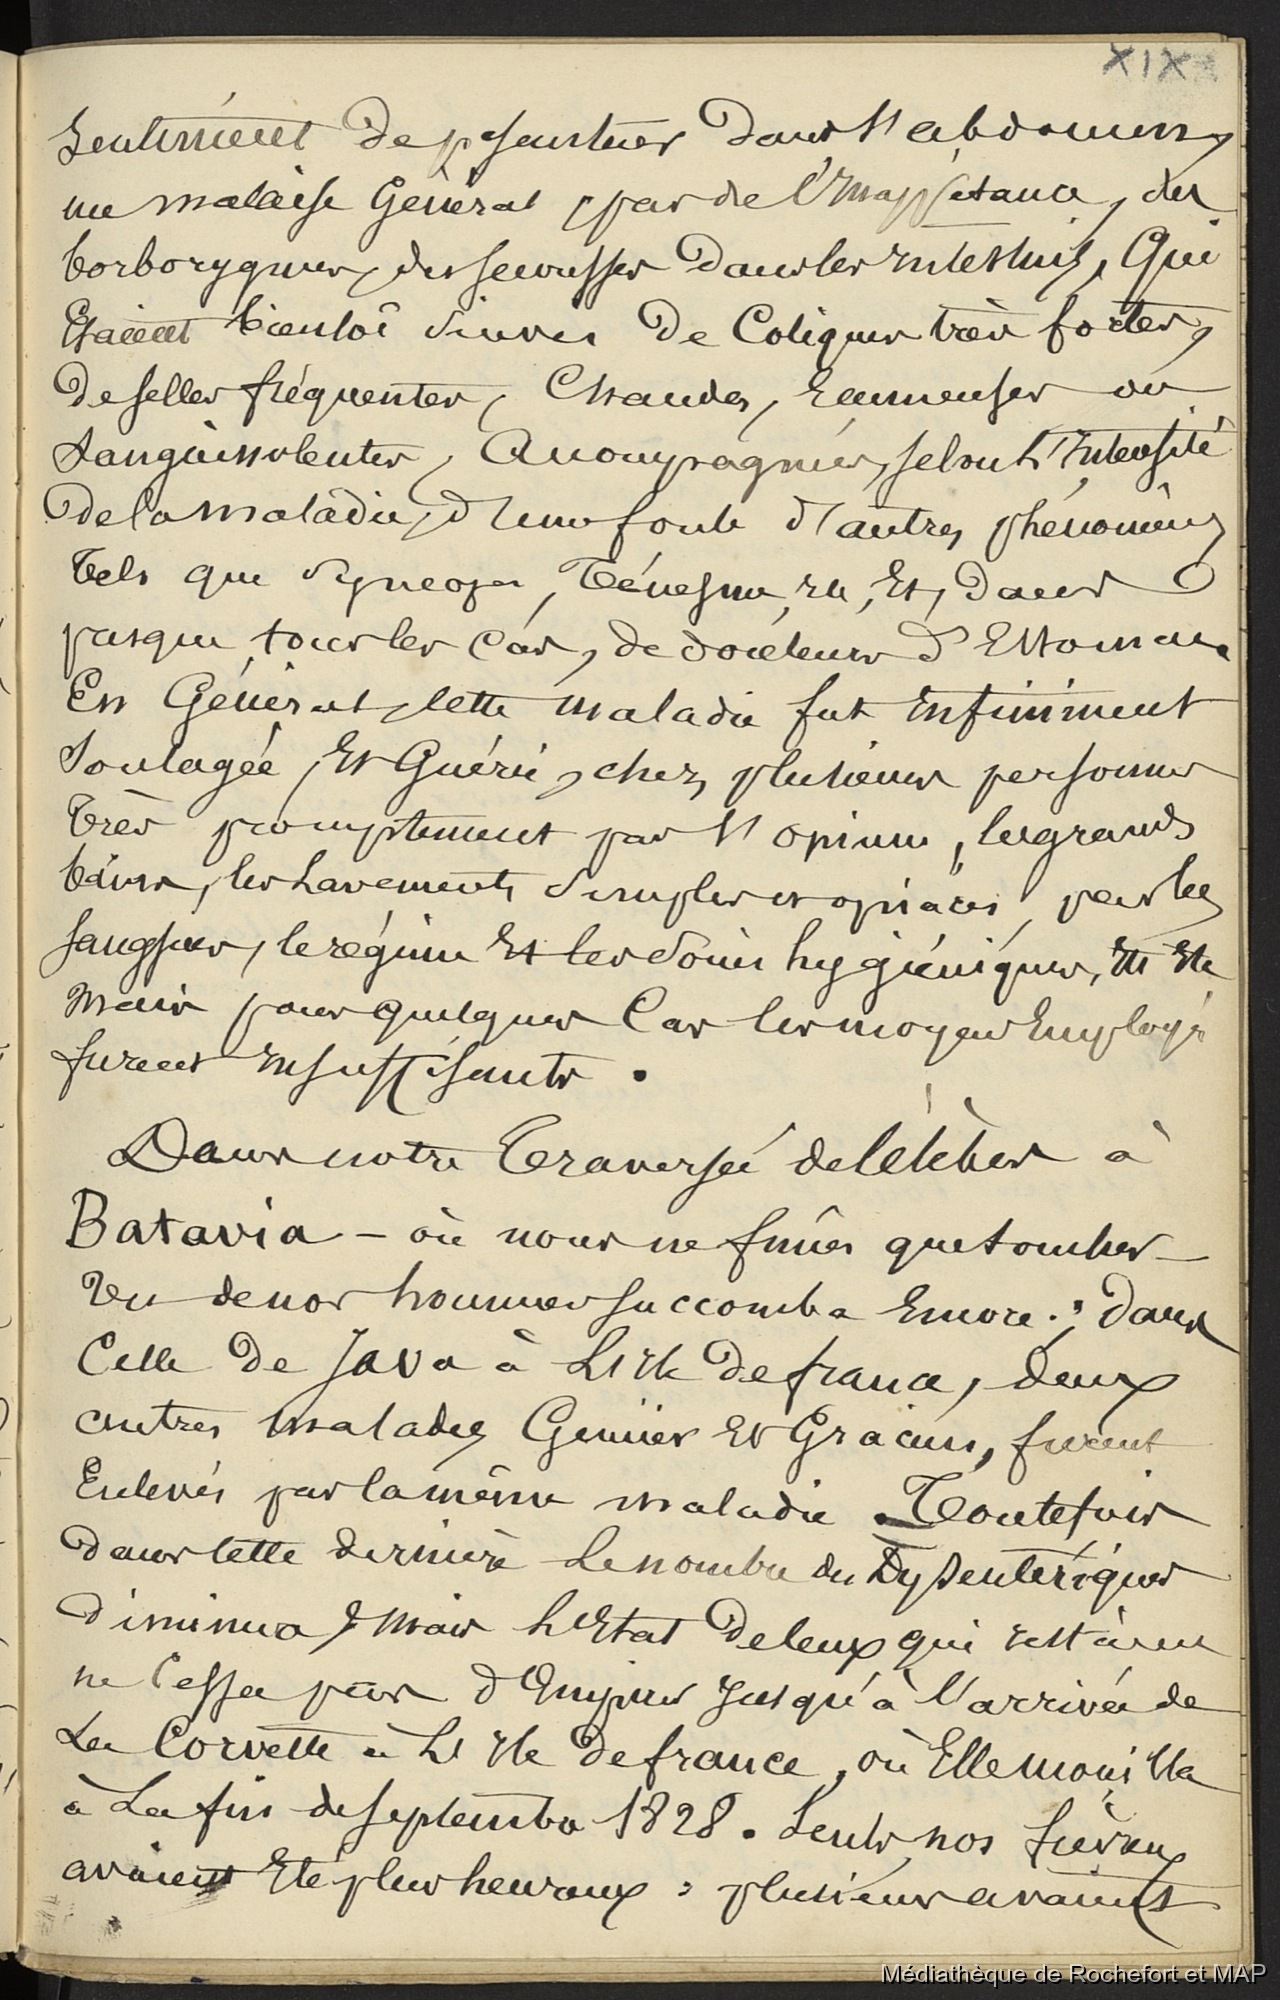 XIX
Sentiment de pesanteur dans l'abdomen,
un malaise Général, par de l'Inappétance, des
borborygmes, des secousses dans les Intestins, Qui
Etaient bientôt suivies de Coliques très fortes,
de selles fréquentes, Chaudes, Ecumeuses ou
sanguinolentes, Accompagnées, selon l'Intensité
de la maladie, d'une foule d'autres phénomènes
Tels que syncopes, Ténesme, etc, Et, dans
presque tous les Cas, de douleurs d'Estomac.
En Général, cette maladie fut Infiniment
soulagée, Et Guérie, chez plusieurs personnes
très promptement par l'opium, les grands
bains, les Lavements simples et opiacés, par les
sangsues, le régime Et les soins hygiéniques, etc etc
mais pour quelques Cas les moyens Employés
furent Insuffisants.
Dans notre Traversée de Célèbes à
Batavia - où nous ne fîmes que tomber -
Un de nos hommes succomba Encore ; dans
Celle de Java à L'Isle de france, deux
autres malades Grimier Et Gracieu, furent
Enlevés par la même maladie. Toutefois
dans cette dernière Le nombre des Dysentériques
diminua, mais l'Etat de ceux qui restaient
ne Cessa pas d'Empirer Jusqu'à l'arrivée de
La Corvette à L'Isle de france, où Elle mouilla
à La fin de septembre 1828. Seuls, nos fiévreux
avaient Eté plus heureux : plusieurs avaient
Médiathèque de Rochefort et MAP